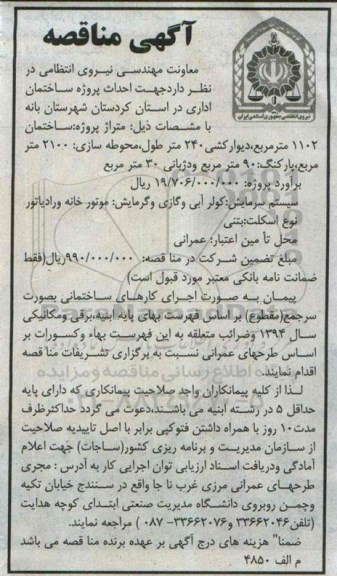 آگهی مناقصه
نیروی انتظامی جمهوری اسلامی ایران
معاونت مهندسی نیروی انتظامی در
نظر داردجهت احداث پروژه ساختمان
اداری در استان کردستان شهرستان بانه
با مشخصات ذیل: متراژ پروژه:ساختمان
۱۱۰۲ مترمربع،دیوارکشی ۲۴۰ متر طول،محوطه سازی: ۲۱۰۰ متر
مربع،پارکینگ:۹۰ متر مربع ودژبانی ۳۰ متر مربع
برآورد پروژه: ۱۹/۷۰۶/۰۰۰/۰۰۰ ریال
سیستم سرمایش:کولر آبی وگازی وگرمایش: موتور خانه ورادیاتور
نوع اسکلت:بتنی
محل تأ مین اعتبار: عمرانی
مبلغ تضمین شرکت در منا قصه: ۹۹۰/۰۰۰/۰۰۰ریال(فقط
ضمانت نامه بانکی معتبر مورد قبول است)
پیمان به صورت اجرای کارهای ساختمانی بصورت
سرجمع(مقطوع) بر اساس فهرست بهای پایه ابنیه،برقی ومکانیکی
سال ۱۳۹۴ وضرائب متعلقه به این فهرست بهاء وکسورات بر
اساس طرحهای عمرانی نسبت به برگزاری تشریفات منا قصه
اقدام نمایند.
لذا از کلیه پیمانکاران واجد صلاحیت پیمانکاری که دارای پایه
حداقل ۵ در رشته ابنیه می باشند،دعوت می گردد حداکثرظرف
مدت۱۰ روز با همراه داشتن فتوکپی برابر با اصل تاییدیه صلاحیت
از سازمان مدیریت و برنامه ریزی کشور(ساجات) جهت اعلام
آمادگی ودریافت اسناد ارزیابی توان اجرایی کار به آدرس : مجری
طرحهای عمرانی مرزی غرب نا جا واقع در سنندج خیابان تکیه
وچمن روبروی دانشگاه مدیریت صنعتی ابتدای کوچه هدایت
(تلفن۳۳۶۶۲۰۴۶ و ۳۳۶۶۲۰۷۶- ۰۸۷ ) مراجعه نمایند.
ضمنا" هزینه های درج آگهی بر عهده برنده منا قصه می باشد
م الف ۴۸۵۰